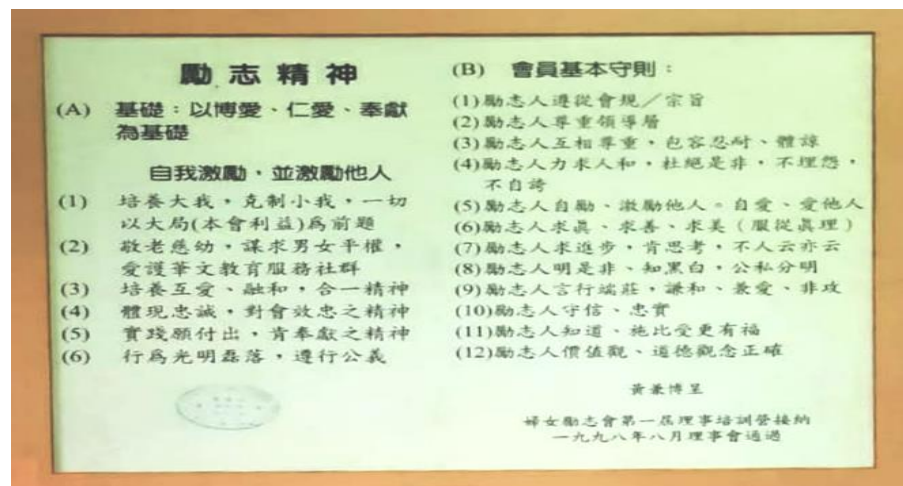 勵志精神
(A) 基礎：以博愛、仁愛、奉獻
為基礎
自我激勵，並激勵他人
(1) 培養大我，克制小我，一切
以大局(本會利益)爲前題
(2) 敬老慈幼，謀求男女平權，
愛護華文教育服務社群
(3) 培養互愛、融和，合一精神
(4) 體現忠誠，對會效忠之精神
(5) 實踐願付出，肯奉獻之精神
(6) 行爲光明磊落，遵行公義
(B) 會員基本守則：
(1)勵志人遵從會規／宗旨
(2)勵志人尊重領導層
(3)勵志人互相尊重，包容忍耐、體諒
(4)勵志人力求人和，杜絕是非，不埋怨，
不自誇
(5)勵志人自勵、激勵他人。自愛、愛他人
(6)勵志人求眞、求善、求美（服從眞理）
(7)勵志人求進步，肯思考，不人云亦云
(8)勵志人明是非、知黑白，公私分明
(9)勵志人言行端莊，謙和、兼愛、非攻
(10)勵志人守信、忠實
(11)勵志人知道、施比受更有福
(12)勵志人價值觀、道德觀念正確
黃兼博呈
婦女勵志會第一屆理事培訓營接納
一九九八年八月理事會通過